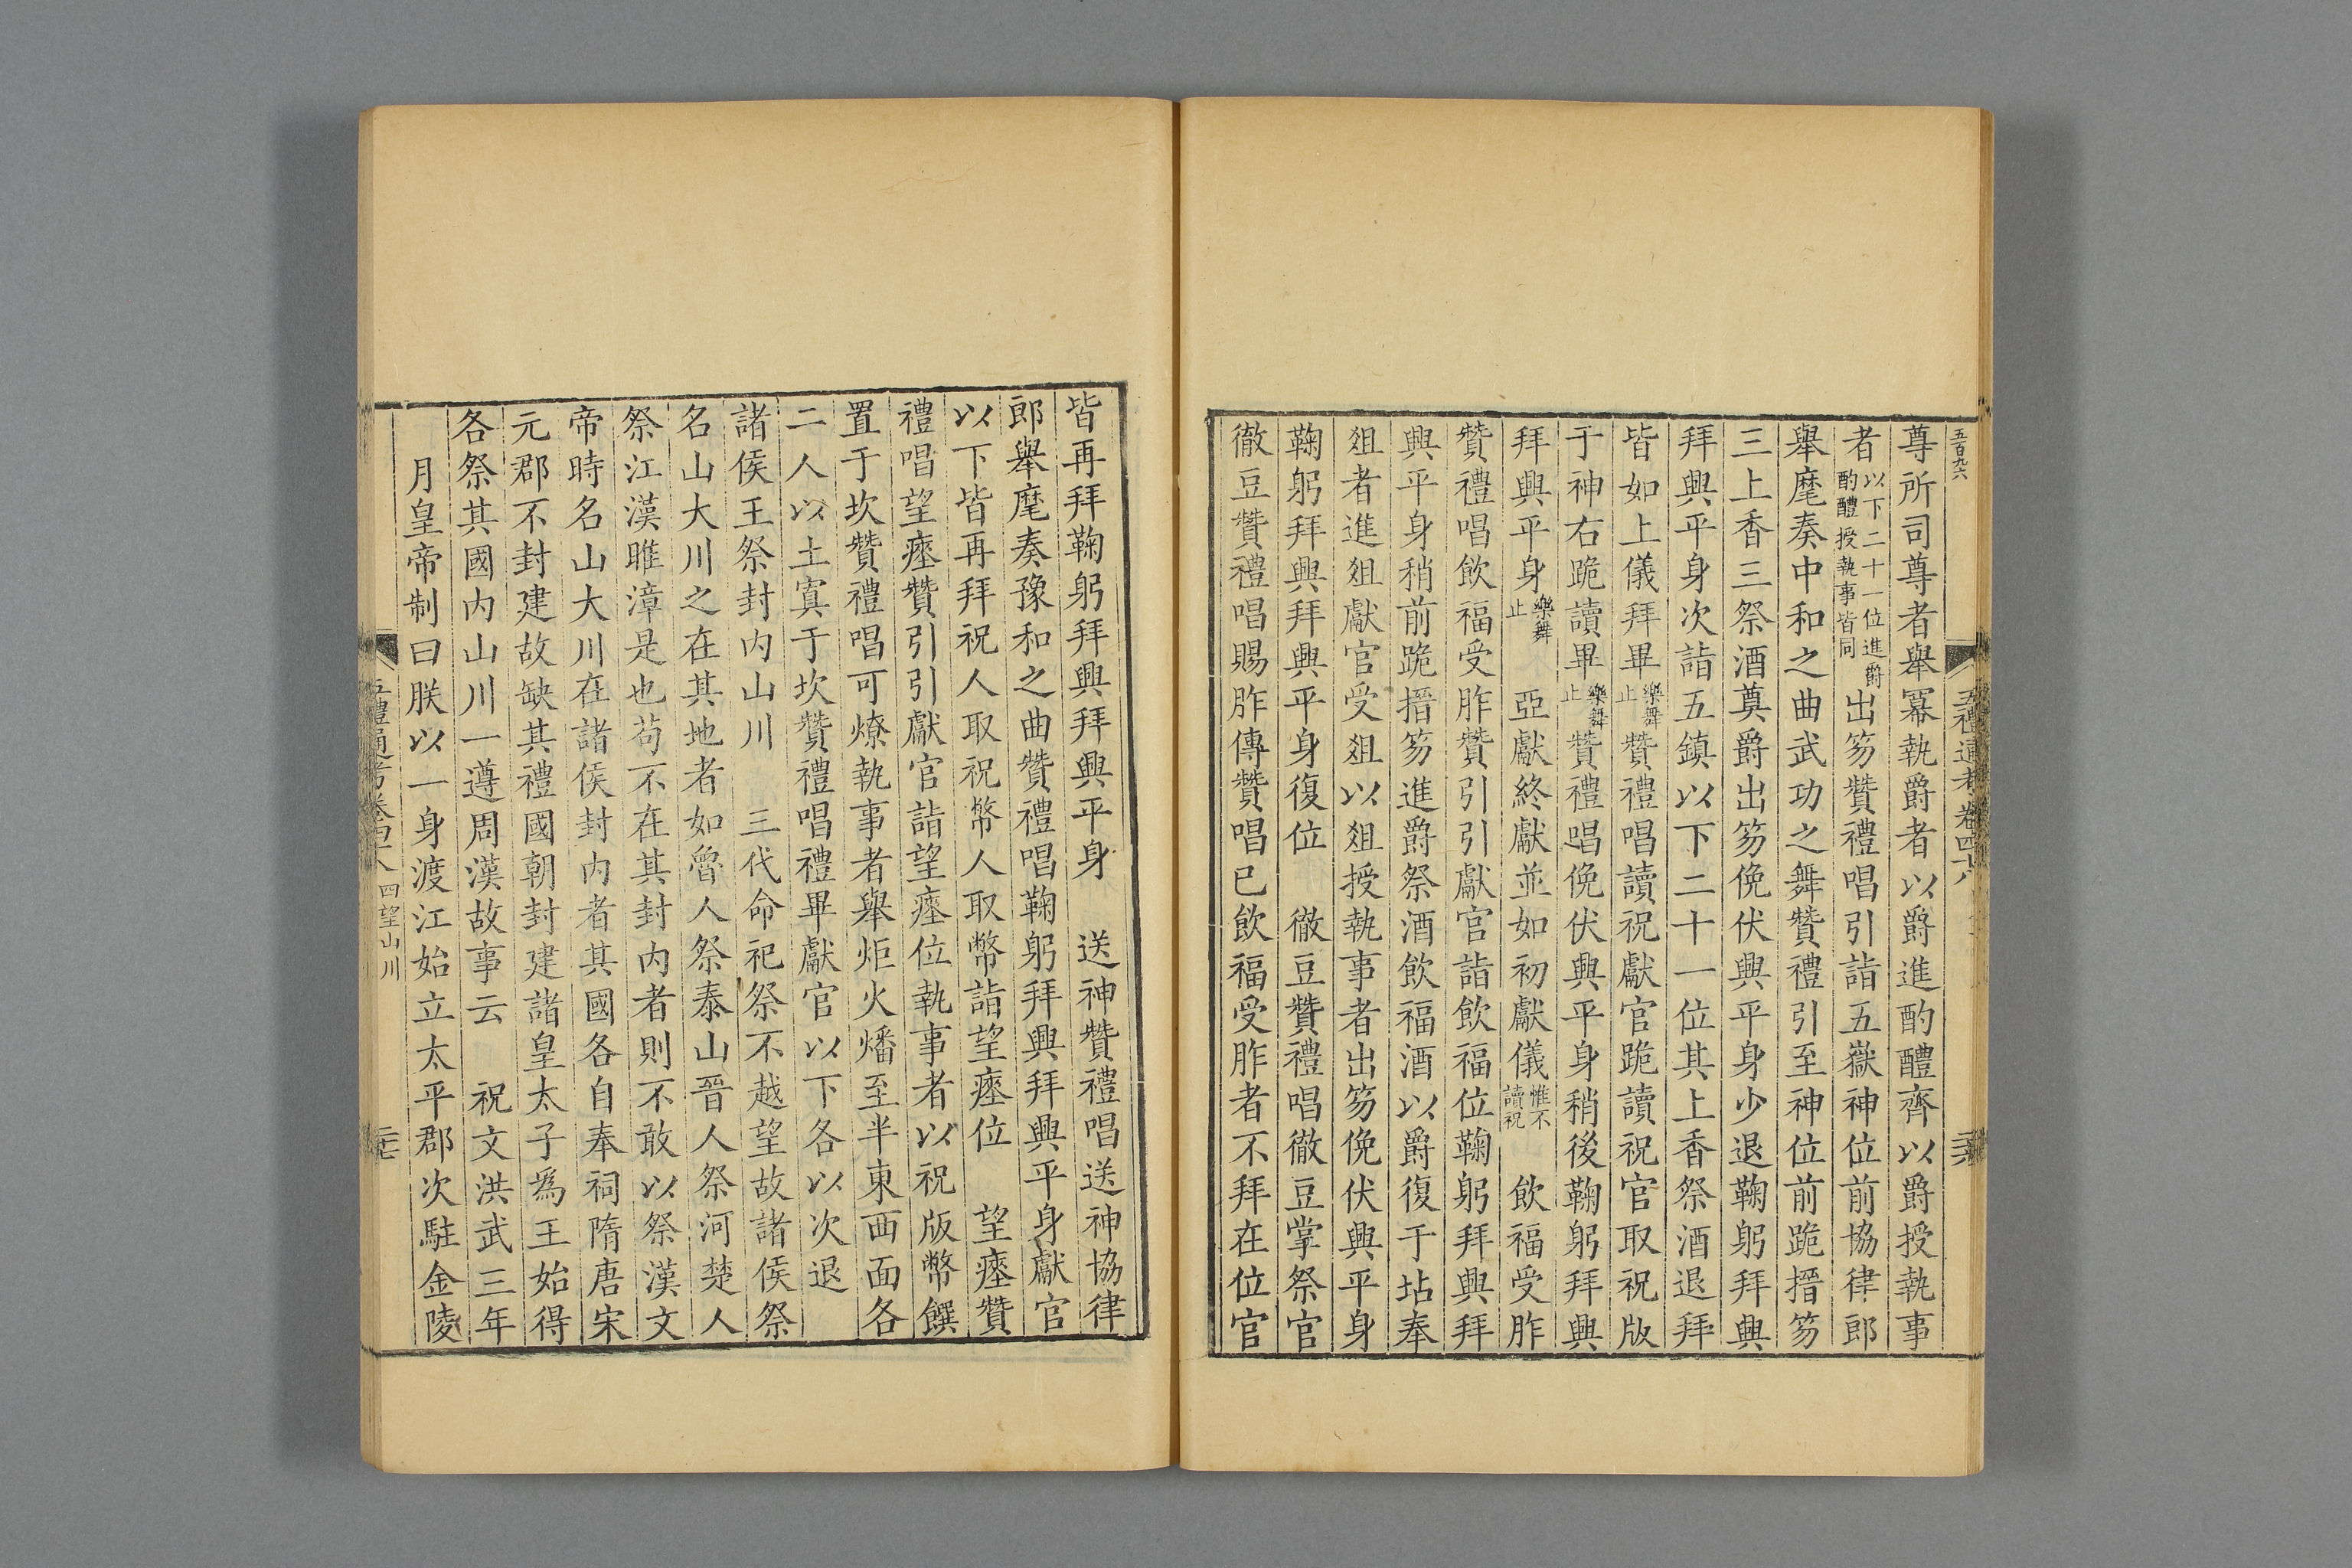 五百九六
五禮通考卷四十八
三六
尊所司尊者舉冪執爵者以爵進酌醴齊以爵授執事
者以下二十一位進爵酌醴授執事皆同出笏贊禮唱引詣五嶽神位前協律郎
舉麾奏中和之曲武功之舞贊禮引至神位前跪搢笏
三上香三祭酒奠爵出笏俛伏興平身少退鞠躬拜興
拜興平身次詣五鎮以下二十一位其上香祭酒退拜
皆如上儀拜畢樂舞止贊禮唱讀祝獻官跪讀祝官取祝版
于神右跪讀畢樂舞止贊禮唱俛伏興平身稍後鞠躬拜興
拜興平身樂舞止 亞獻終獻並如初獻儀惟不讀祝 飲福受胙
贊禮唱飲福受胙贊引引獻官詣飲福位鞠躬拜興拜
興平身稍前跪搢笏進爵祭酒飲福酒以爵復于坫奉
俎者進俎獻官受俎以俎授執事者出笏俛伏興平身
鞠躬拜興拜興平身復位 徹豆贊禮唱徹豆掌祭官
徹豆贊禮唱賜胙傳贊唱已飲福受胙者不拜在位官
皆再拜鞠躬拜興拜興平身 送神贊禮唱送神協律
郎舉麾奏豫和之曲贊禮唱鞠躬拜興拜興平身獻官
以下皆再拜祝人取祝幣人取幣詣望瘞位 望瘞贊
禮唱望瘞贊引引獻官詣望瘞位執事者以祝版幣饌
置于坎贊禮唱可燎執事者舉炬火燔至半東西面各
二人以土寘于坎贊禮唱禮畢獻官以下各以次退
諸侯王祭封内山川 三代命祀祭不越望故諸侯祭
名山大川之在其地者如魯人祭泰山晉人祭河楚人
祭江漢睢漳是也苟不在其封内者則不敢以祭漢文
帝時名山大川在諸侯封内者其國各自奉祠隋唐宋
元郡不封建故缺其禮國朝封建諸皇太子爲王始得
各祭其國内山川一遵周漢故事云 祝文洪武三年
月皇帝制曰朕以一身渡江始立太平郡次駐金陵
五禮通考卷四十八 四望山川
三七